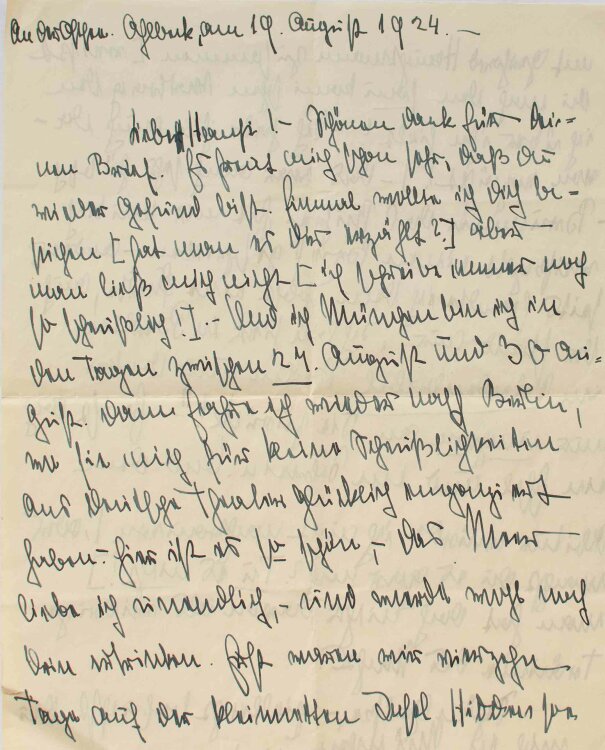 An der Ostsee. Ahlbeck, am 19. August 1924. —
Lieber Hansi! – Schönen Dank für Dei-
nen Brief. Es freut mich schon sehr, daß du
wieder gesund bist. Einmal wollte ich dich be-
suchen [hat man es dir erzählt?] aber
man ließ mich nicht [ich schreibe immer noch
so scheußlich!]. – Und in München bin ich in
den Tagen zwischen 24. August und 30 Au-
gust. Dann fahre ich wieder nach Berlin,
wo sie mich für keine Scheußlichkeiten
ans Deutsche Theater glücklich engagiert
haben – hier ist es so schön, – das Meer
liebe ich unendlich, – und werde wohl noch
drin ertrinken. Erst waren wir vierzehn
Tage auf der kleinen netten Insel Hiddensoe